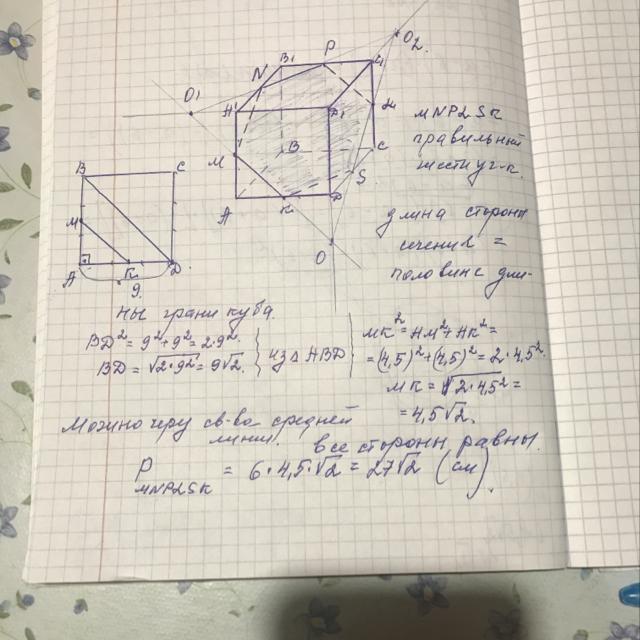 O₂
B₁ P
N
O₁
M
B
C
S
A K
O
MNP2SK
правильный
шестиуг-к.
длина стороны
сечения =
половине дли-
B C
M
A K D
9
ны грани куба.
BD² = 9²+9² = 2·9²
BD = √2·9² = 9√2.
из △ ABD
MK² = AM²+AK² =
= (4,5)²+(4,5)² = 2·4,5²
MK = √2·4,5² =
= 4,5√2.
Можно чрез св-ва средней
линии.
все стороны равны.
P MNP2SK = 6·4,5·√2 = 27√2 (см).